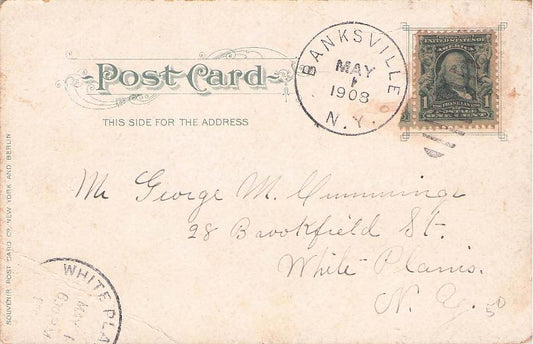 BANKSVILLE
MAY
1
1908
N. Y.
UNITED STATES OF AMERICA
1 1
FRANKLIN
POSTAGE
ONE CENT
Post Card
THIS SIDE FOR THE ADDRESS
Mr George M. Cummings
28 Brookfield St.
White Plains.
N. Y.
50
SOUVENIR POST CARD CO. NEW YORK AND BERLIN
WHITE PLA
MAY 1